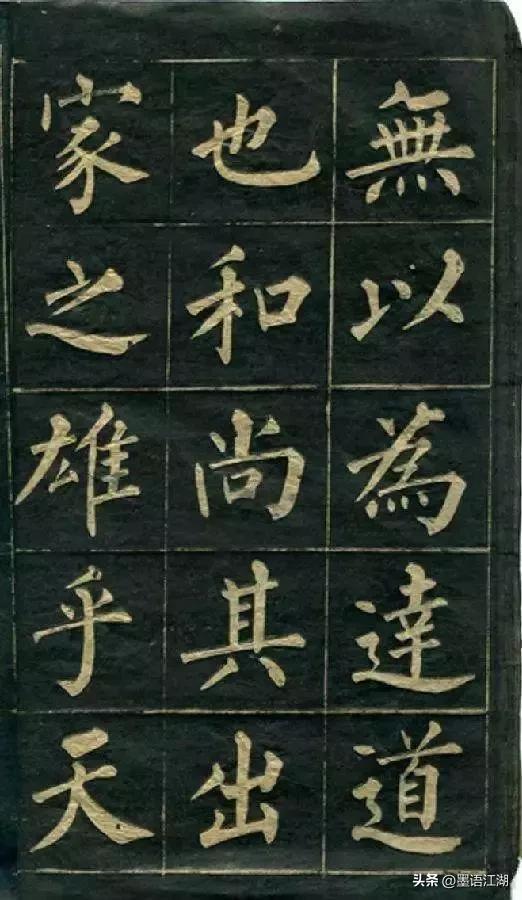 無以為達道
也和尚其出
家之雄乎天
头条 @墨语江湖